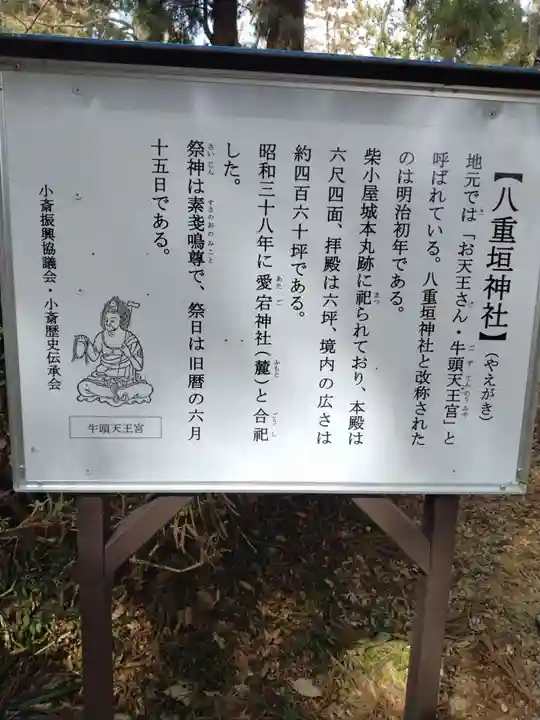 【八重垣神社】（やえがき）
地元では「お天王さん・牛頭天王宮」と
呼ばれている。八重垣神社と改称された
のは明治初年である。
柴小屋城本丸跡に祀られており、本殿は
六尺四面、拝殿は六坪、境内の広さは
約四百六十坪である。
昭和三十八年に愛宕神社（麓）と合祀
した。
祭神は素戔嗚尊で、祭日は旧暦の六月
十五日である。
小斎振興協議会・小斎歴史伝承会
牛頭天王宮